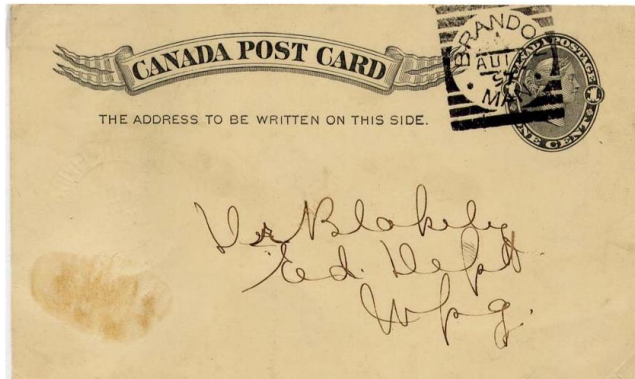 CANADA POST CARD
THE ADDRESS TO BE WRITTEN ON THIS SIDE.
BRANDO
AU 1
MAN
ONE CENT
Dr Blakely
Ed. Dept.
Wpg.